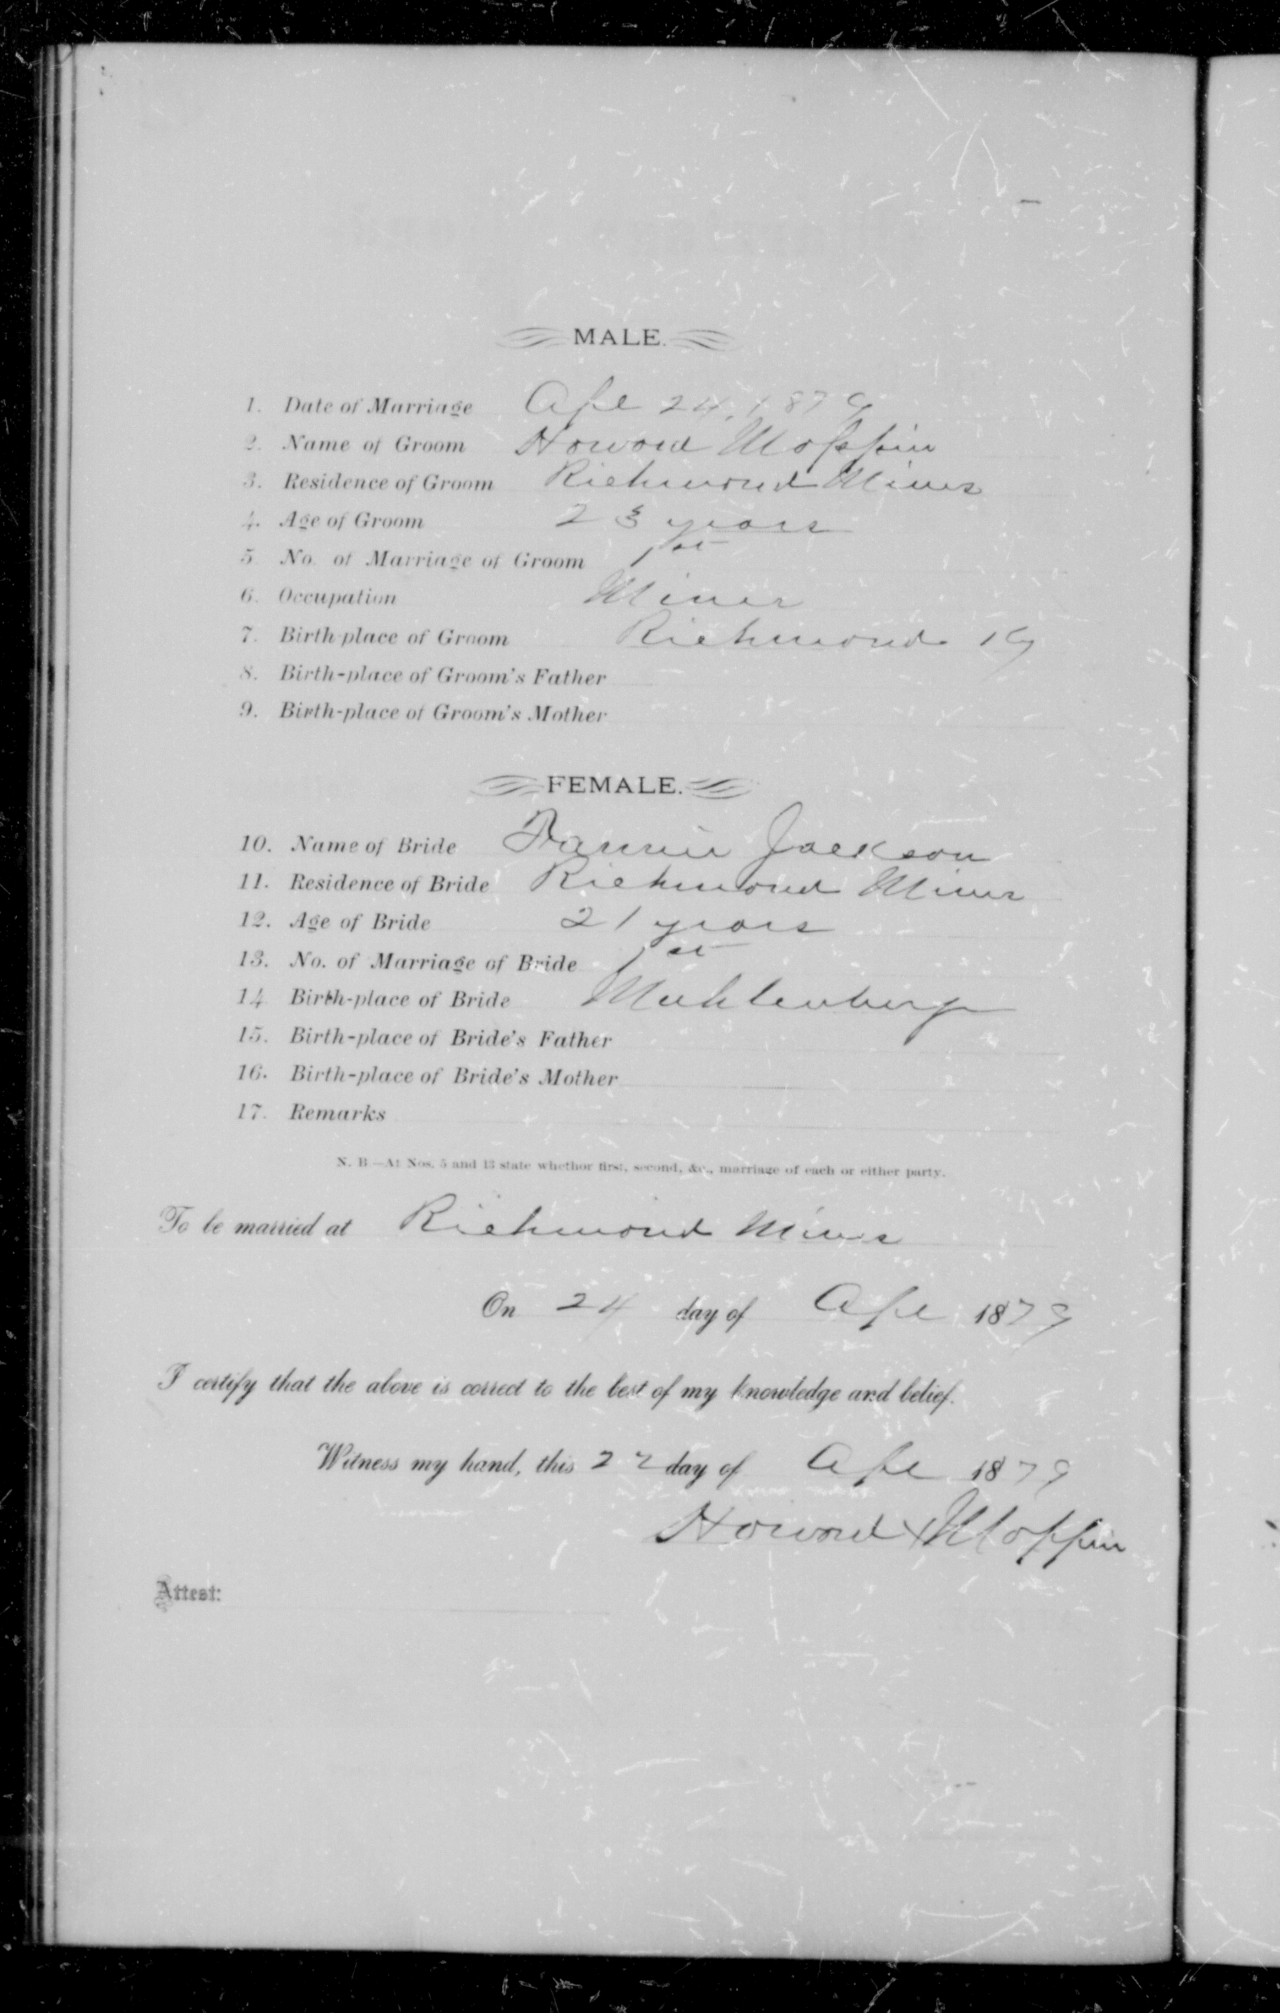 MALE.
1. Date of Marriage Apl 24, 1879
2. Name of Groom Howard Moppin
3. Residence of Groom Richmond Mines
4. Age of Groom 23 years
5 No. of Marriage of Groom 1st
6. Occupation Miner
7. Birth-place of Groom Richmond Ky
8. Birth-place of Groom's Father
9. Birth-place of Groom's Mother
FEMALE.
10. Name of Bride Fannie Jackson
11. Residence of Bride Richmond Mines
12. Age of Bride 21 years
13. No. of Marriage of Bride 1st
14 Birth-place of Bride Muhlenburg
15. Birth-place of Bride's Father
16. Birth-place of Bride's Mother
17. Remarks
N. B—At Nos. 5 and 13 state whethor first, second, &c., marriage of each or either party.
To be married at Richmond Mines
On 24 day of Apl 1879
I certify that the above is correct to the best of my knowledge and belief.
Witness my hand, this 22 day of Apl 1879
Howard X Moppin
Attest: